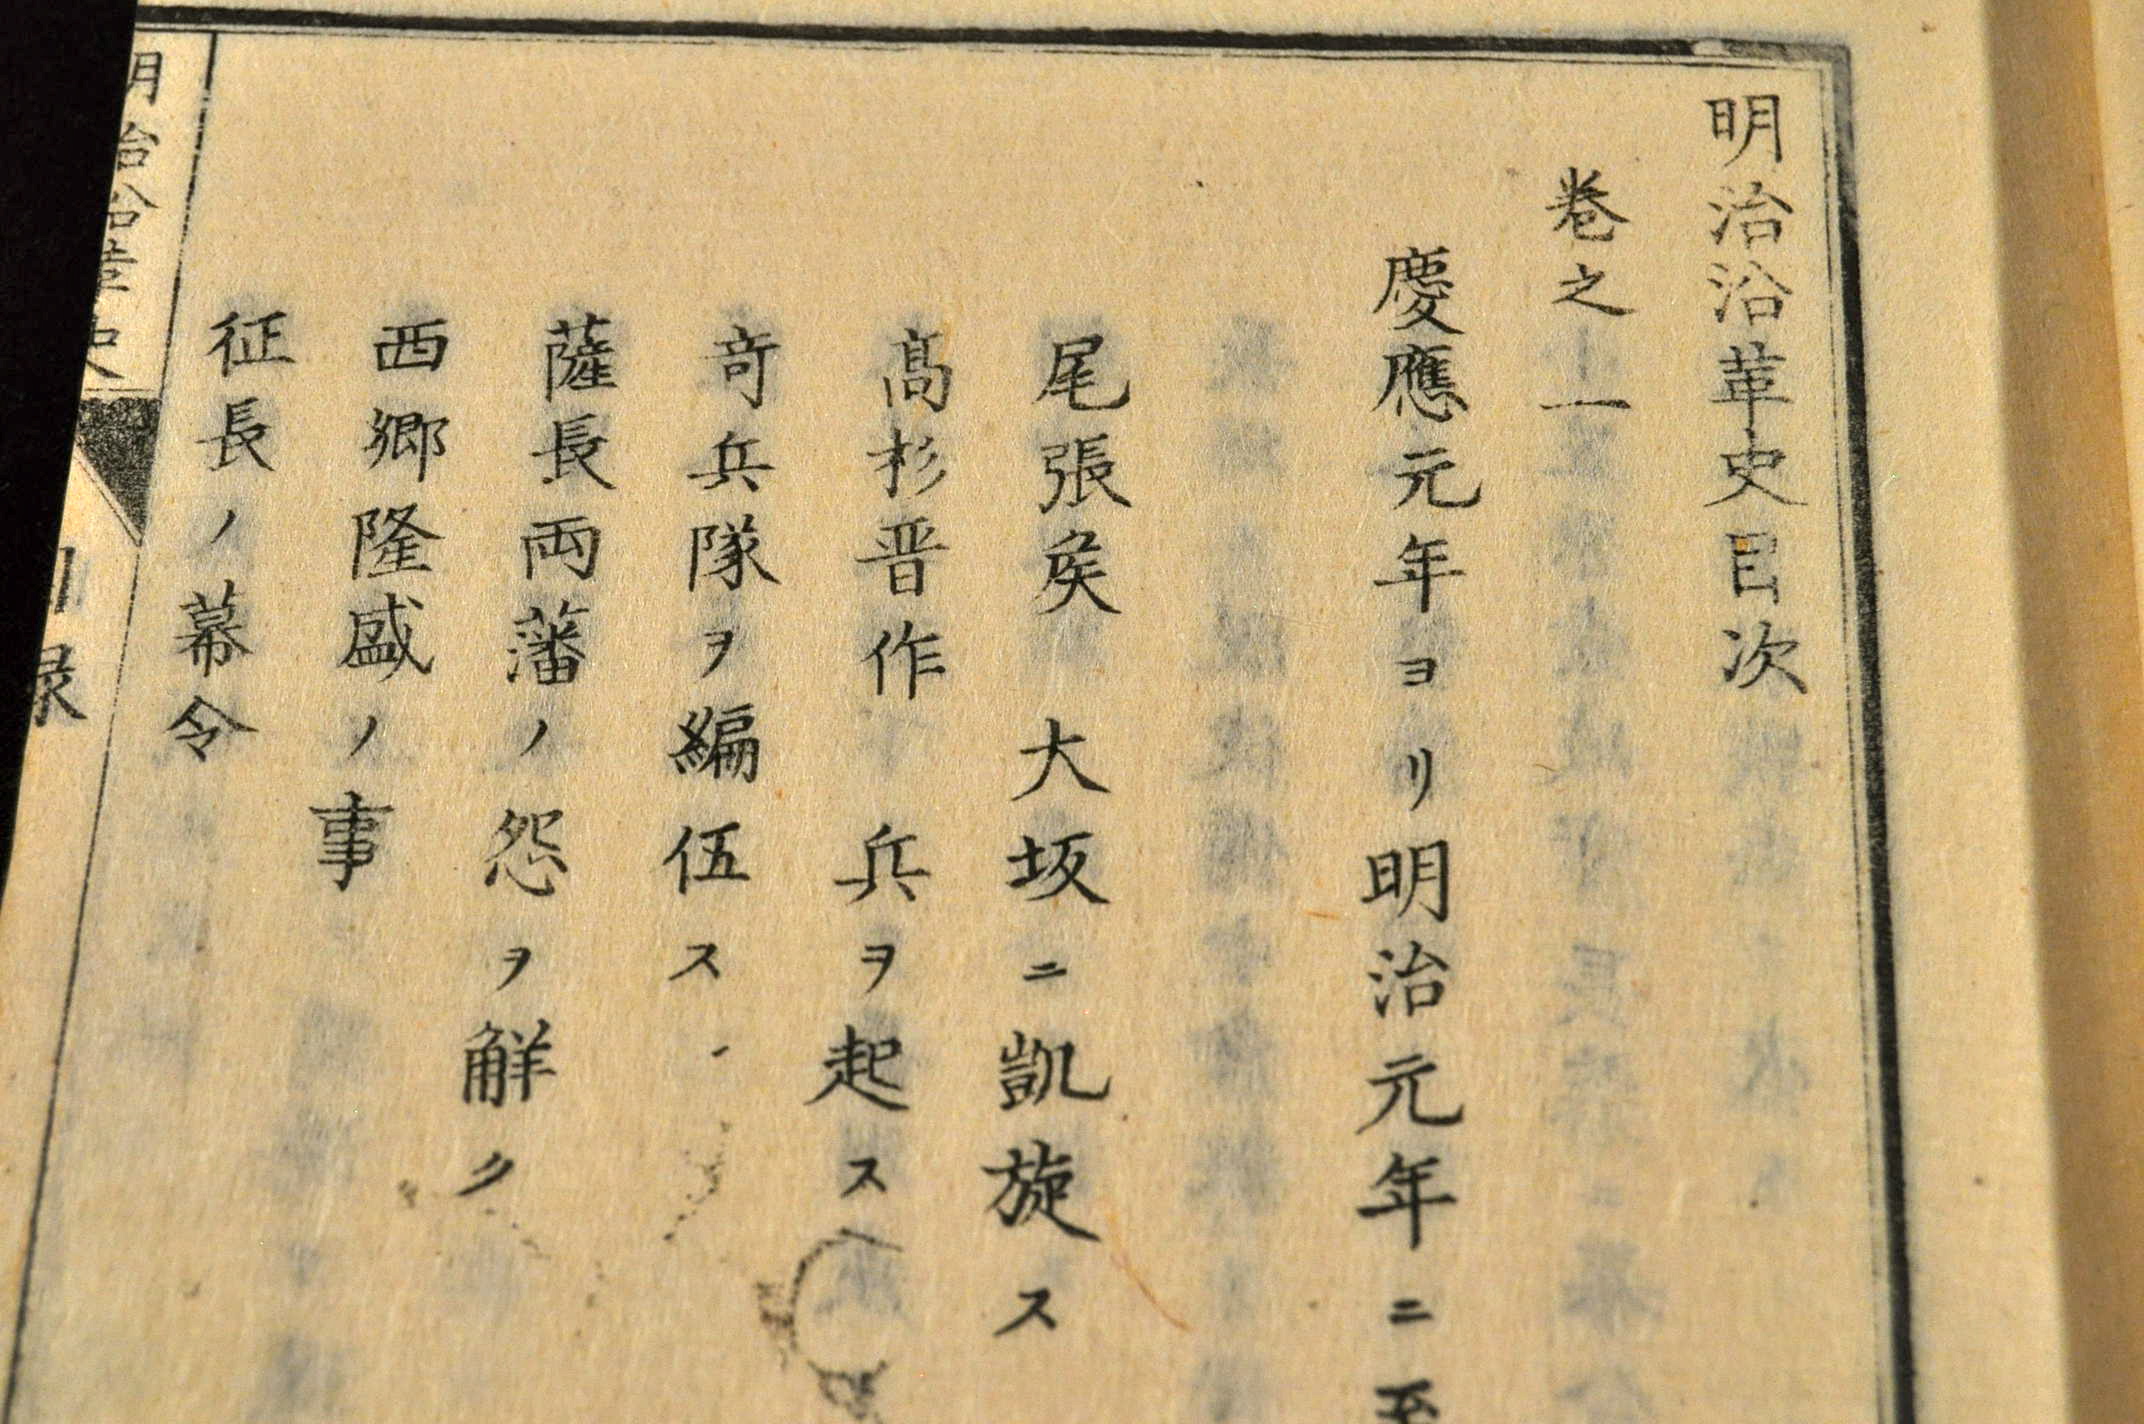 明治沿革史目次
巻之一
慶應元年ヨリ明治元年ニ至
尾張矦大坂ニ凱旋ス
髙杉晋作兵ヲ起ス
竒兵隊ヲ編伍ス
薩長両藩ノ怨ヲ觧ク
西郷隆盛ノ事
征長ノ幕令
明治沿革史
目録